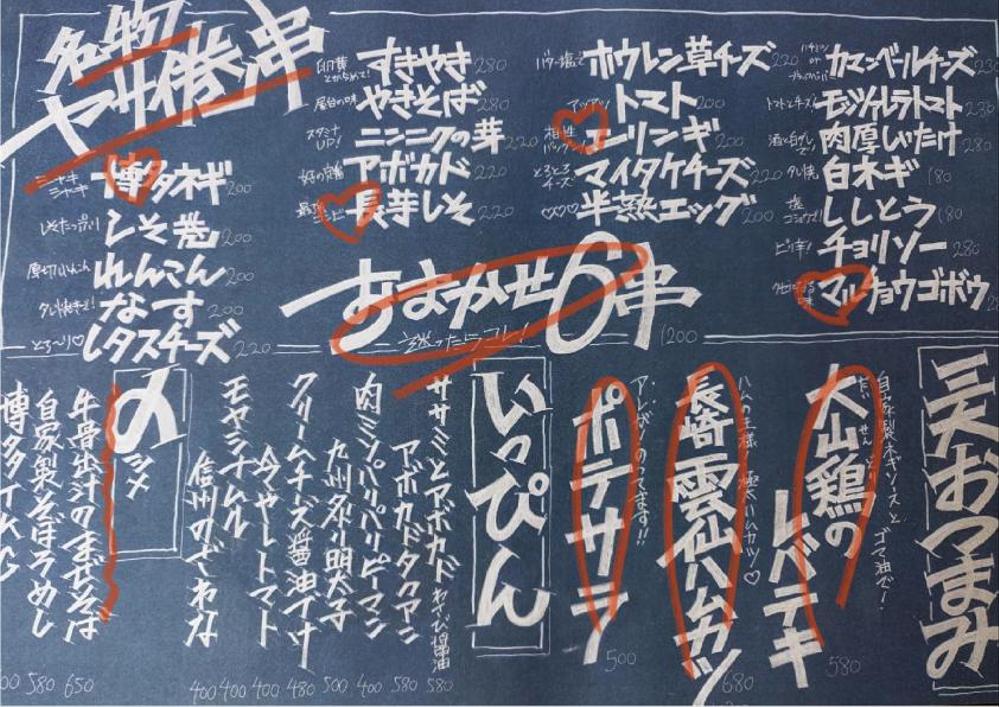 名物
ヤサイ巻串
シャキシャキ 博多ネギ 200
しそたっぷり しそ巻 200
厚切りれんこん れんこん 200
タレ焼きで! なす 200
とろ〜り♡ レタスチーズ 220
卵黄とからめて! すきやき 280
屋台の味 やきそば 280
スタミナUP! ニンニクの芽 220
好の定番 アボカド 220
長芋しそ 220
バター塩で ホウレン草チーズ 220
アツアツ トマト 200
相性バツグン エーリンギ 200
とろとろチーズ マイタケチーズ 220
♡♡♡ 半熟エッグ 200
ハチミツ or ブラックペッパー カマンベールチーズ 230
トマトとチーズ! モッツァレラトマト 230
肉厚しいたけ 280
タレ焼 白ネギ 180
塩コショウで! ししとう 180
ピリ辛! チョリソー 280
マルチョウゴボウ
おまかせ6串
迷ったらコレ! 1200
三大おつまみ
自家製ネギソースとゴマ油で!
だいせんどり
大山鶏のレバテキ 580
ハムの王様 極ハムカツ♡
長崎雲仙ハムカツ 680
アレがのってます!!
ポテサラ 500
いっぴん
ササミとアボカド わさび醤油 580
アボカドタクアン 580
肉ミソパリパリピーマン 400
九州タカリ明太子 500
クリームチーズ醤油づけ 480
冷やしトマト 400
モヤシナムル 400
信州のざわな 400
〆 シメ
牛骨出汁のまぜそば 650
自家製そぼろめし 580